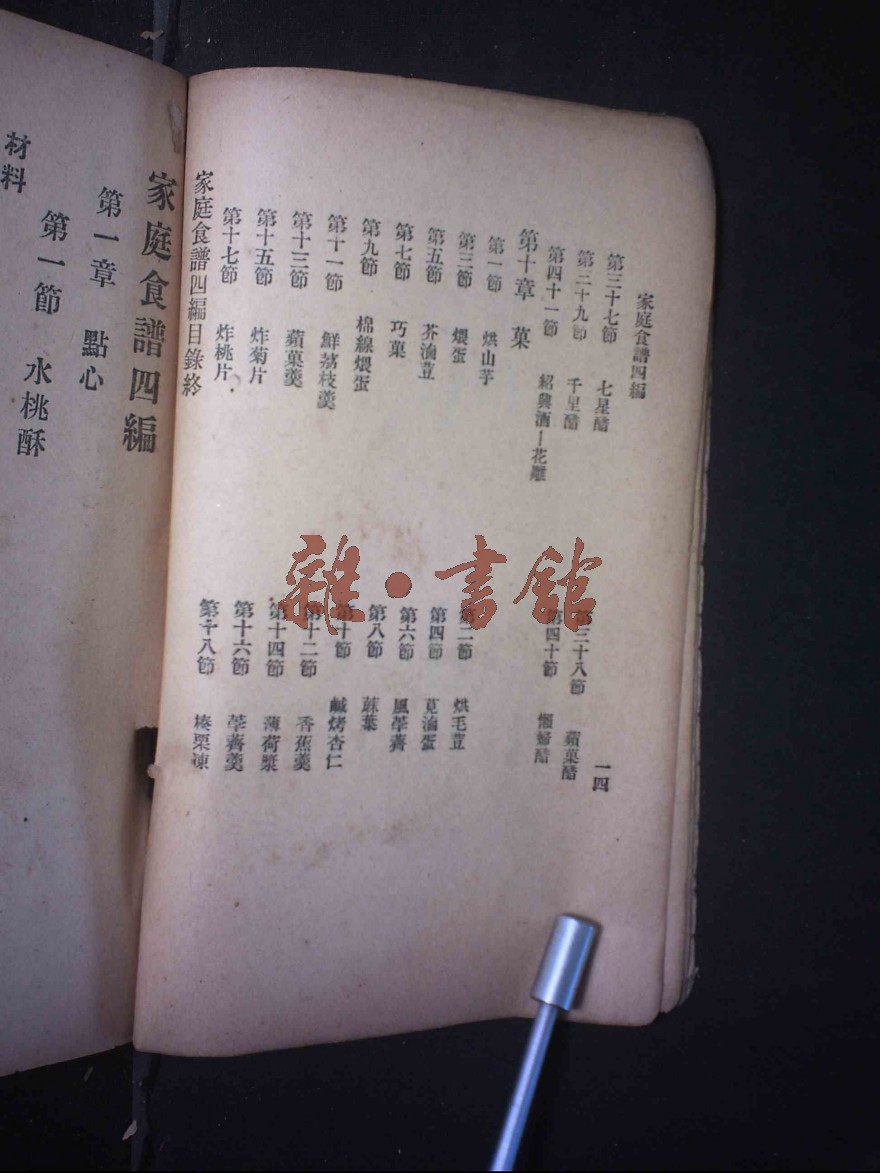 家庭食譜四編
一四
第三十七節 七星醋
第三十八節 蘋菓醋
第三十九節 千里醋
第四十節 懶婦醋
第四十一節 紹興酒—花雕
第十章 菓
第一節 烘山芋
第二節 烘毛荳
第三節 煨蛋
第四節 莧滷蛋
第五節 芥滷荳
第六節 風荸薺
第七節 巧菓
第八節 蔴葉
第九節 棉線煨蛋
第十節 鹹烤杏仁
第十一節 鮮荔枝羹
第十二節 香蕉羹
第十三節 蘋菓羹
第十四節 薄荷漿
第十五節 炸菊片
第十六節 荸薺羹
第十七節 炸桃片
第十八節 棗栗凍
家庭食譜四編目錄終
家庭食譜四編
第一章 點心
第一節 水桃酥
材料
雜·書舘